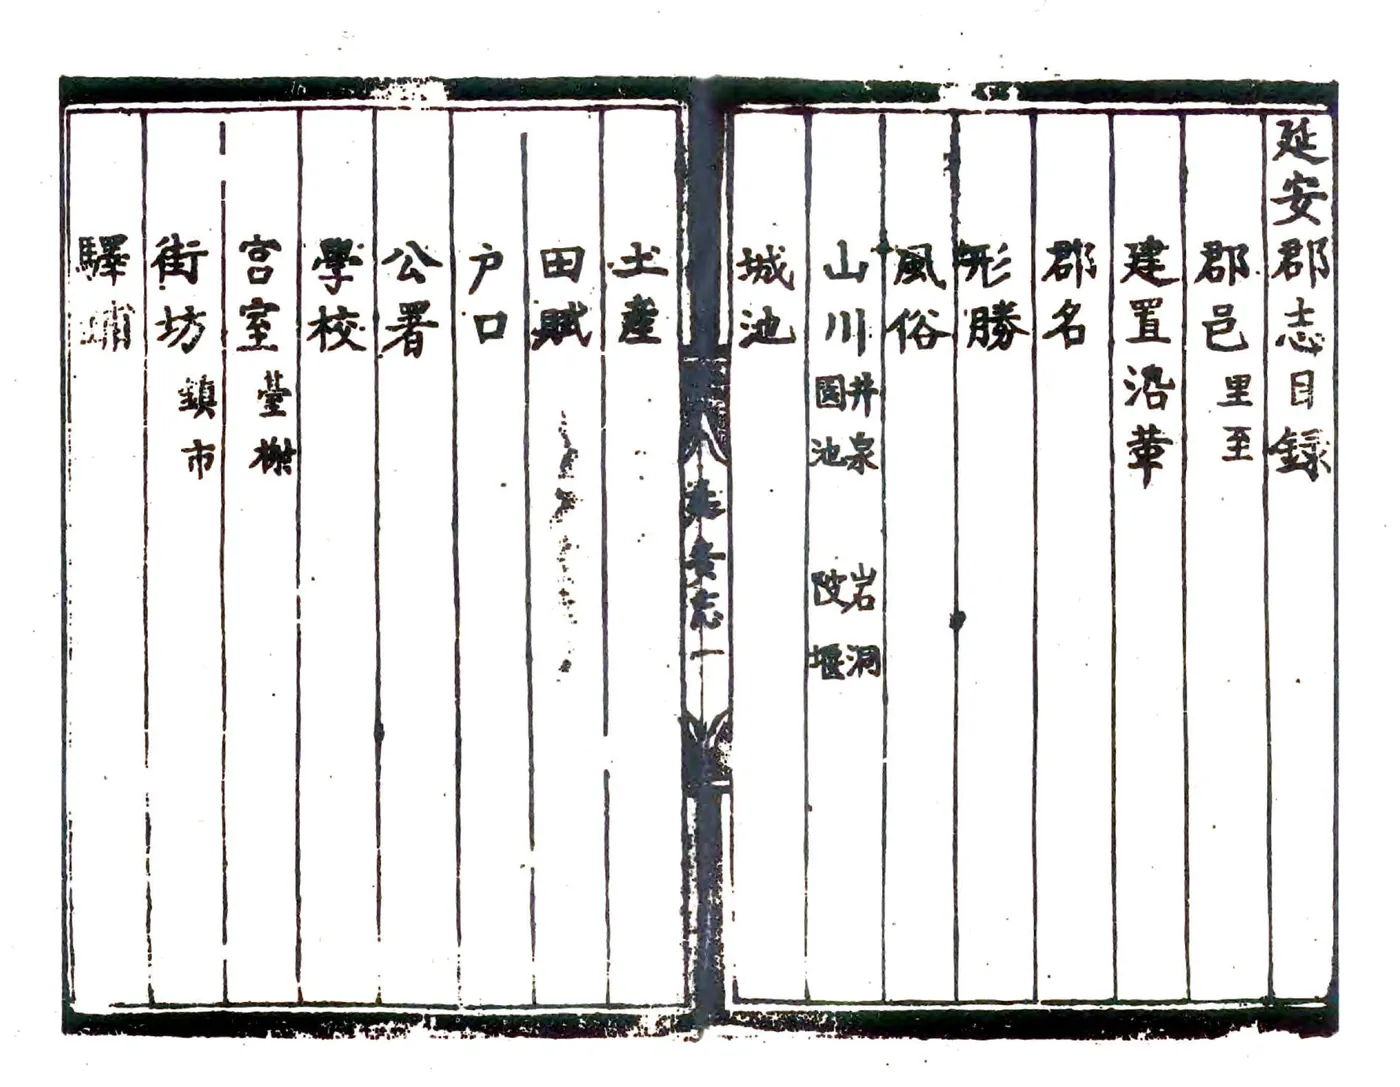 延安郡志目録
郡邑 里至
建置沿革
郡名
形勝
風俗
山川 井泉 園池 岩洞 陂堰
城池
延安志一
土產
田賦
户口
公署
學校
宮室 臺榭
街坊 鎮市
驛鋪